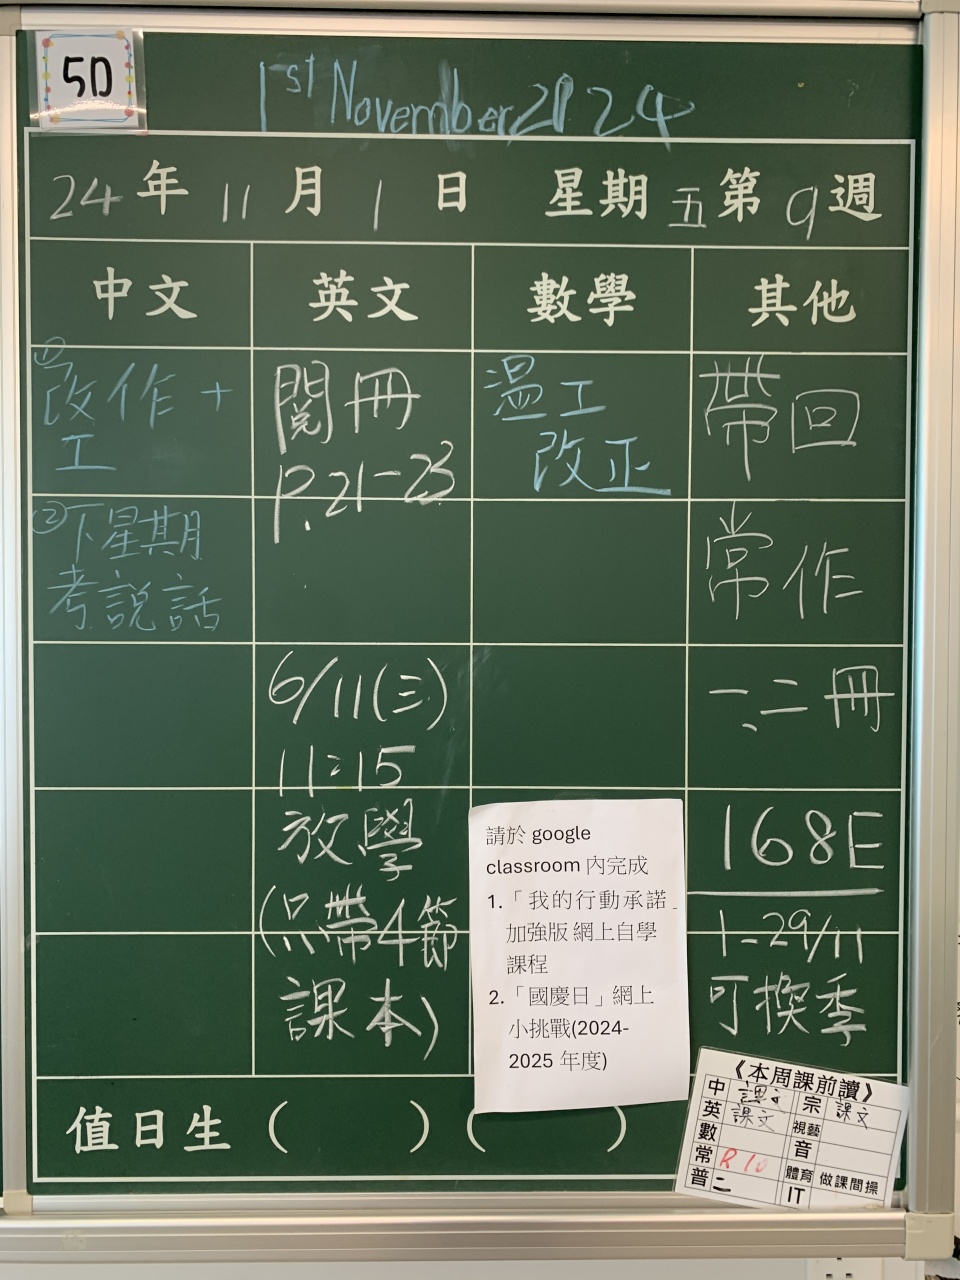 5D
1st November, 2024
24年11月1日 星期五第9週
中文 英文 數學 其他
①改作+
工
②下星期
考說話
閱冊
P.21-23
6/11(三)
11:15
放學
(只帶4節
課本)
溫工
改正
帶回
常作
一、二冊
168E
1-29/11
可換季
請於 google
classroom 內完成
1.「我的行動承諾」
加強版 網上自學
課程
2.「國慶日」網上
小挑戰(2024-
2025 年度)
值日生( )( )
《本周課前讀》
中 課文 宗 課文
英 課文 視藝
數 音
常 R 10 體育 做課間操
普 二 IT